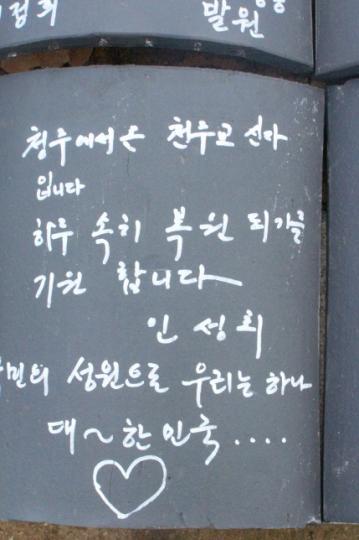 발원
청주에서온 천주교 신자
입니다
하루 속히 복원 되기를
기원 합니다
인성희
국민의 성원으로 우리는 하나
대~한민국....